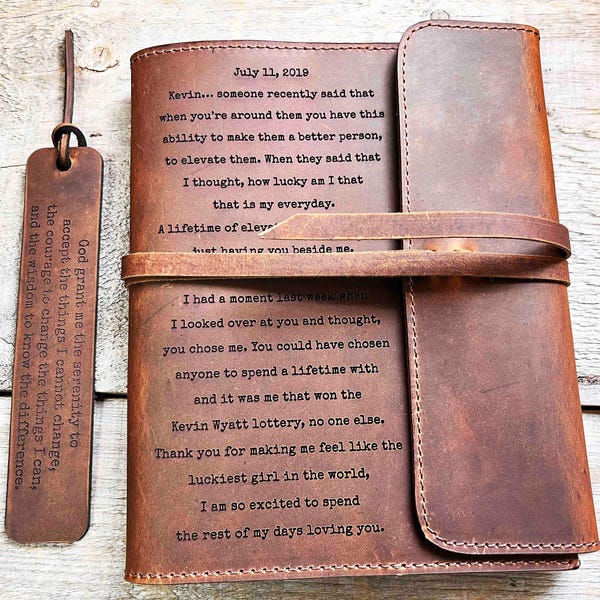 God grant me the serenity to
accept the things I cannot change,
the courage to change the things I can,
and the wisdom to know the difference.
July 11, 2019
Kevin... someone recently said that
when you're around them you have this
ability to make them a better person,
to elevate them. When they said that
I thought, how lucky am I that
that is my everyday.
A lifetime of
just having you beside me.
I had a moment last week when
I looked over at you and thought,
you chose me. You could have chosen
anyone to spend a lifetime with
and it was me that won the
Kevin Wyatt lottery, no one else.
Thank you for making me feel like the
luckiest girl in the world,
I am so excited to spend
the rest of my days loving you.